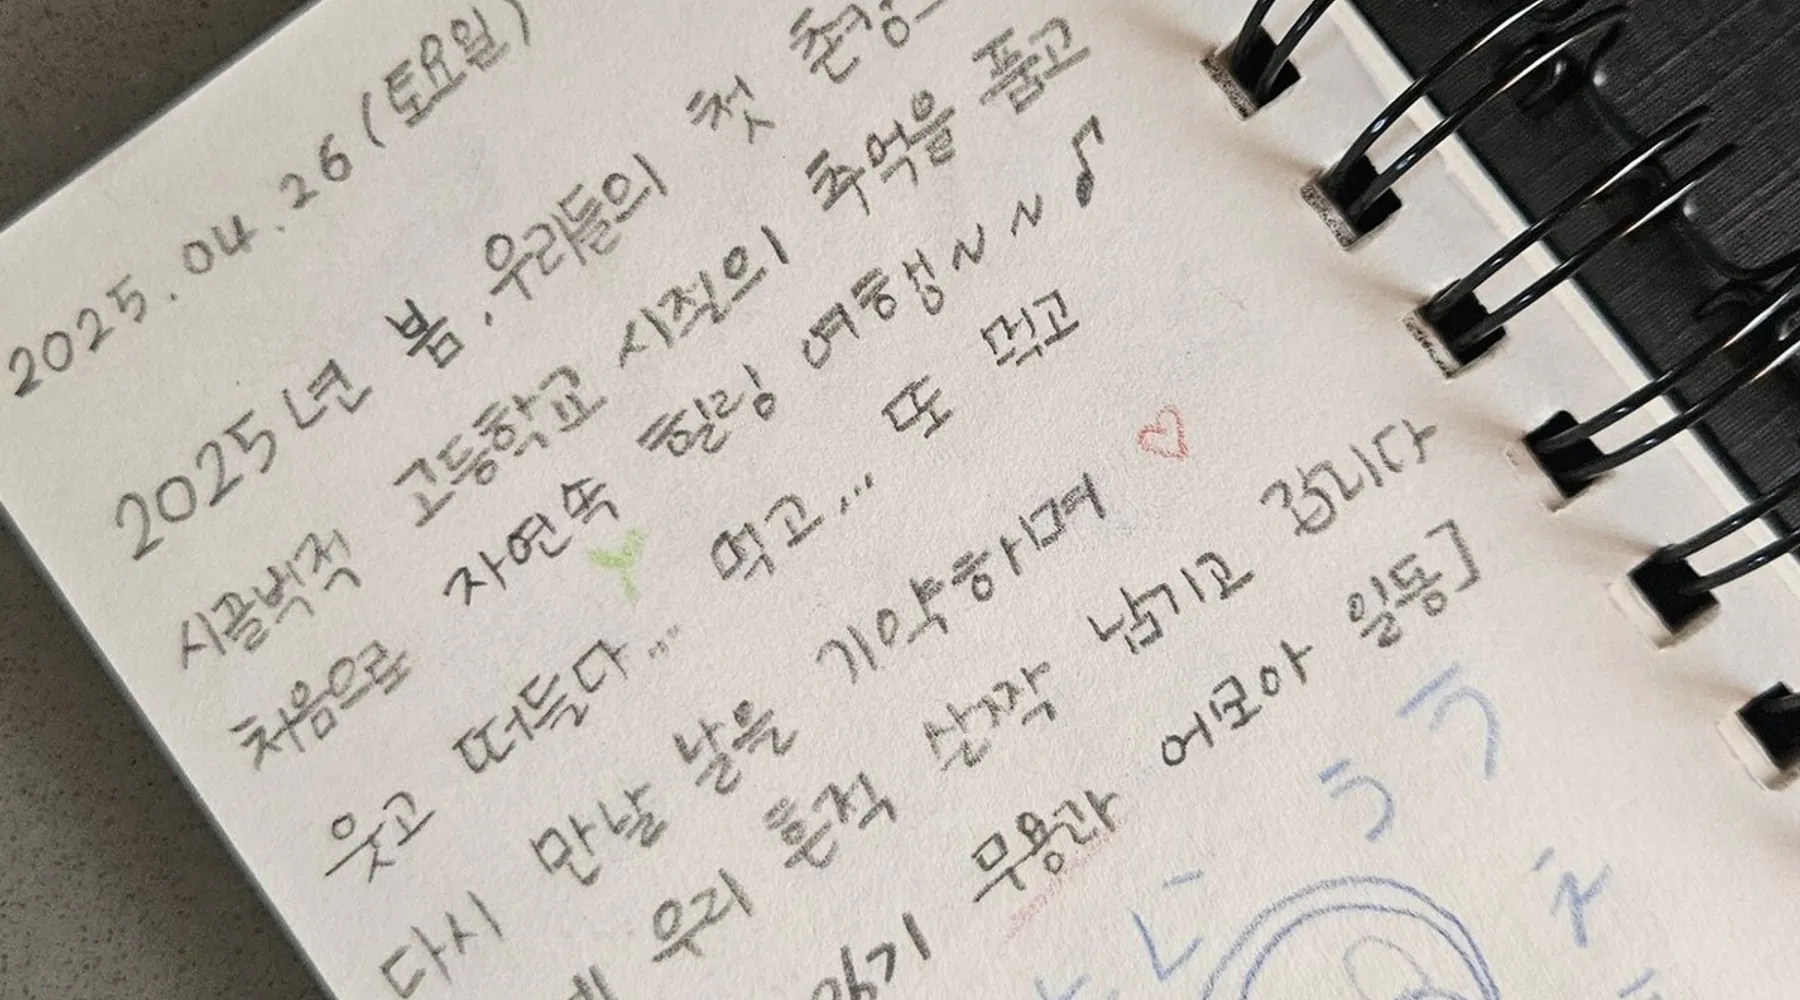 2025. 04. 26 (토요일)
2025년 봄, 우리들의 첫
시골벅적 고등학교 시절의 추억을 품고
처음으로 자연속 힐링 여행~~♪
웃고 떠들다... 먹고... 또 먹고
다시 만날 날을 기약하며 ♡
우리 흔적 살짝 남기고 갑니다
무용과 어모아 일동]